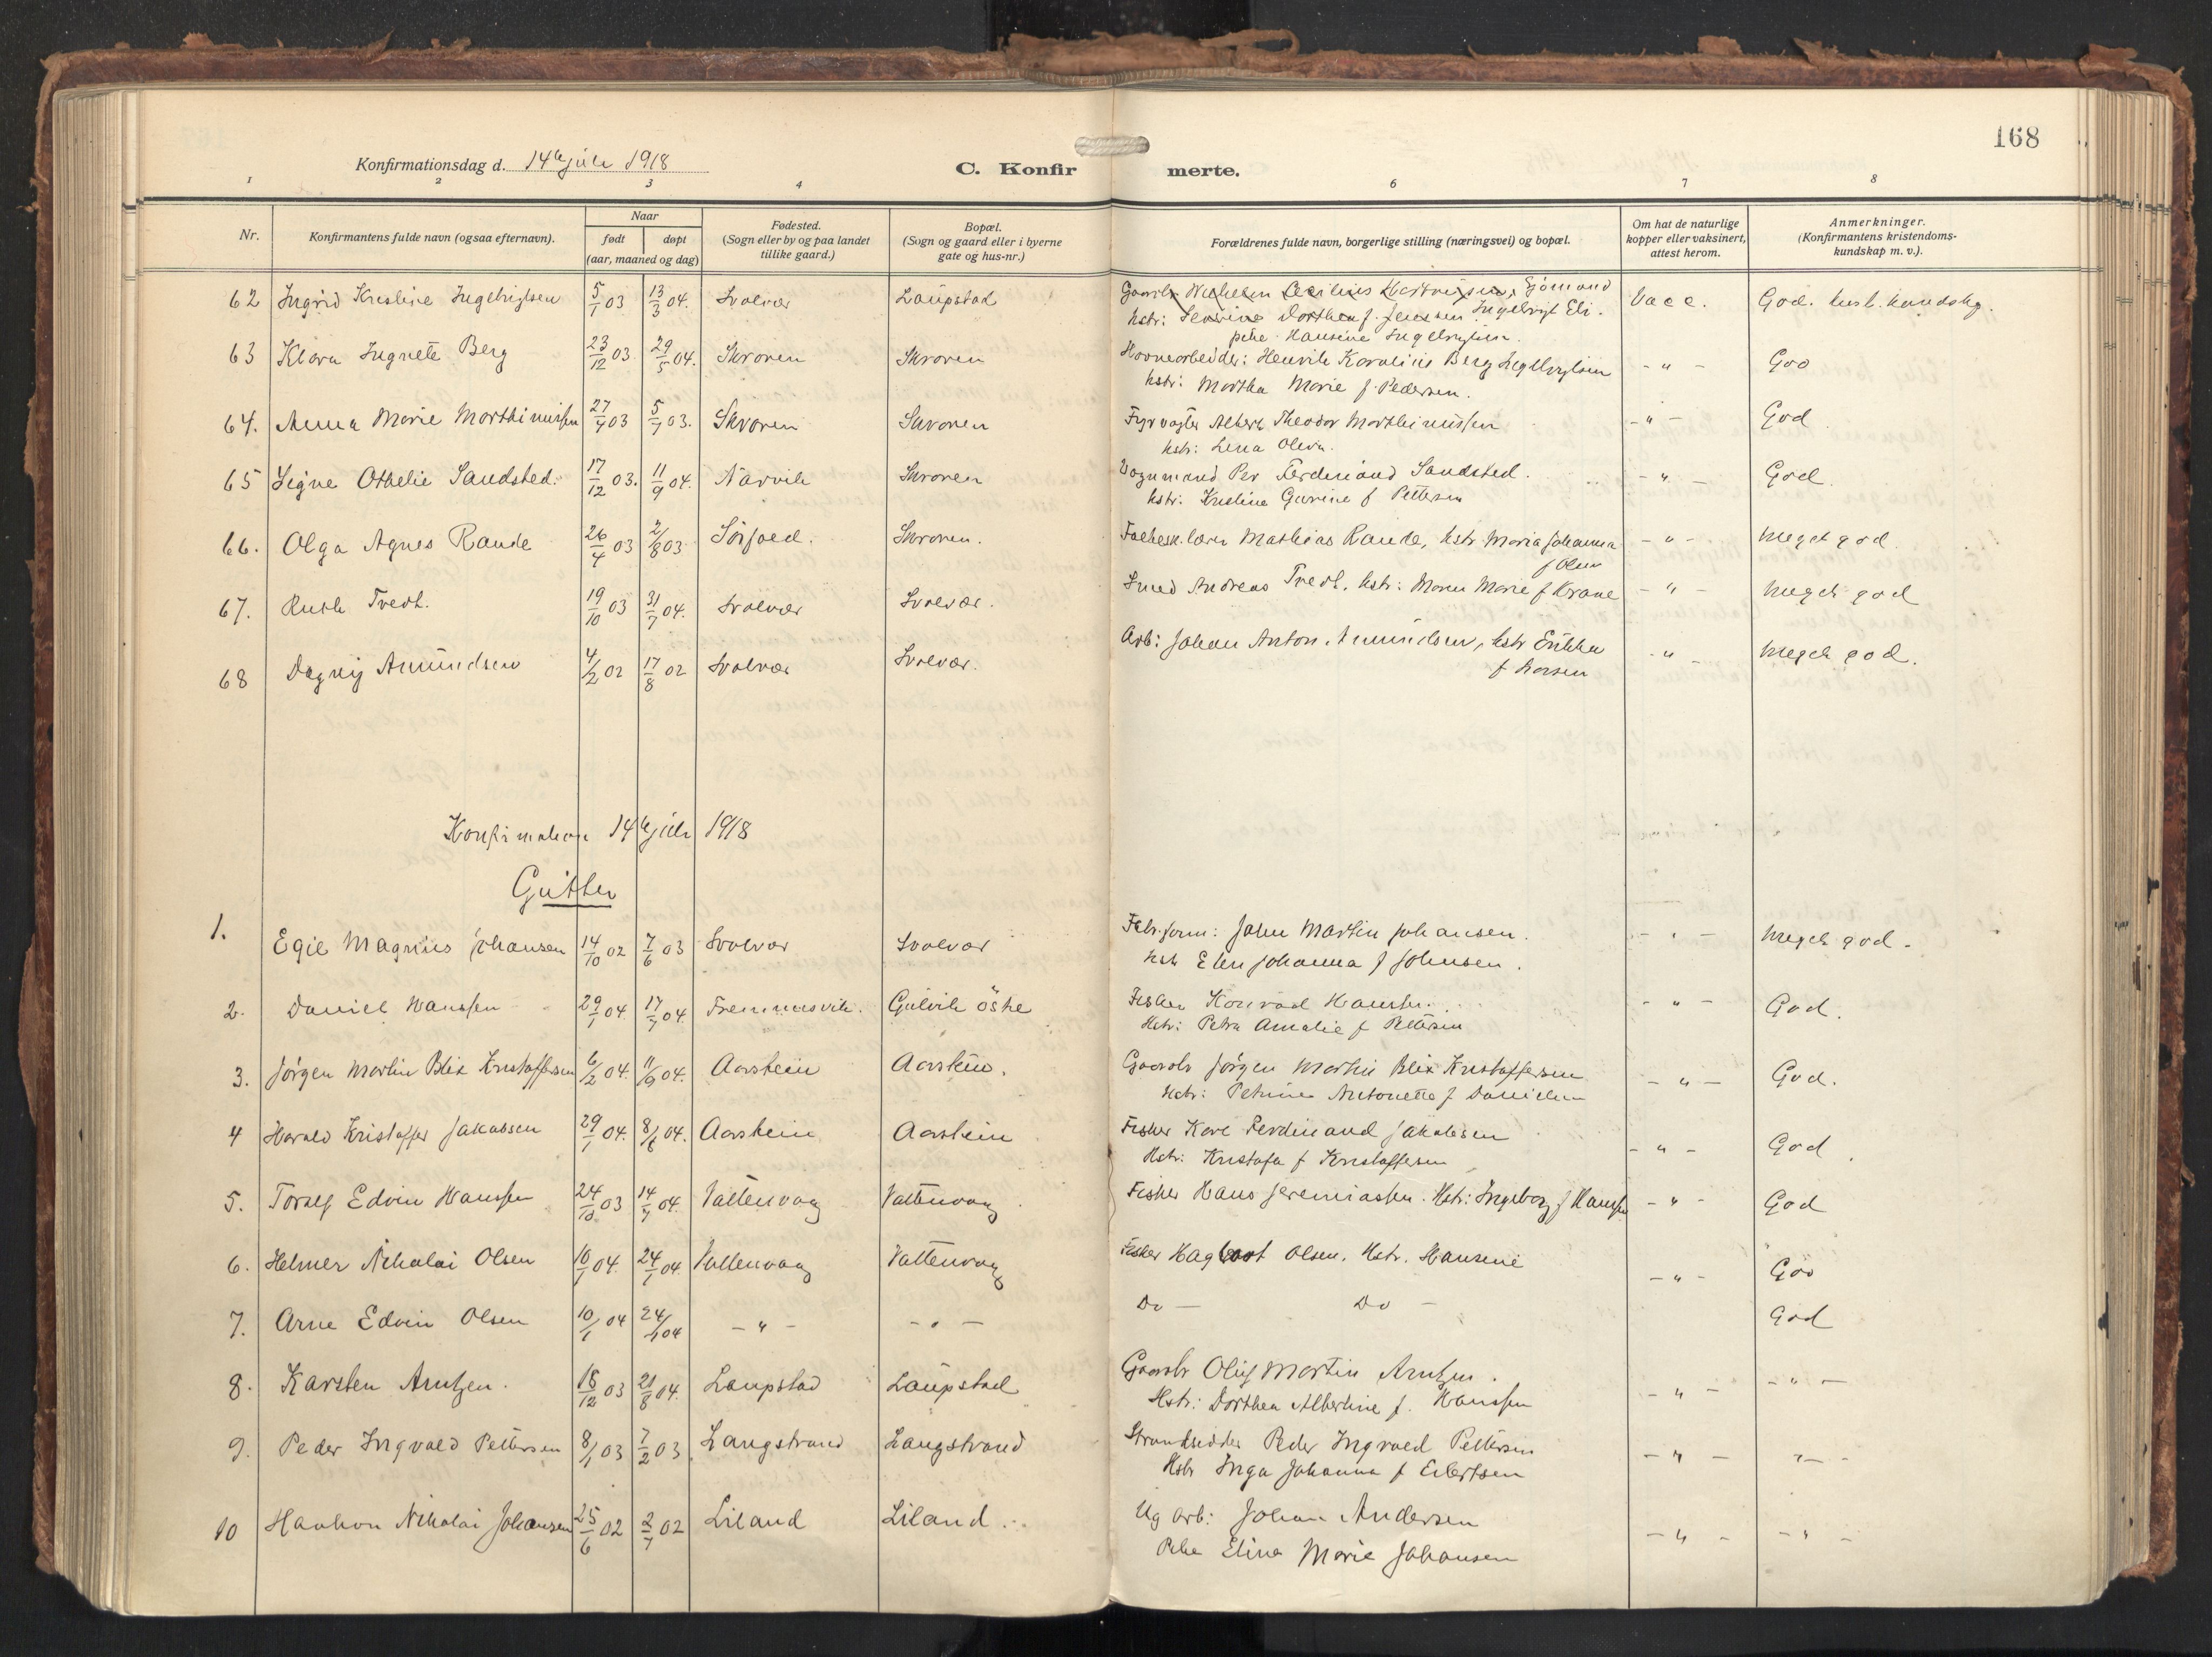 168
Konfirmationsdag d. 14de juli 1918
C. Konfirmerte.
1 2 3 4 6 7 8
Nr. Konfirmantens fulde navn (ogsaa efternavn). Naar født døpt (aar, maaned og dag) Fødested. (Sogn eller by og paa landet tillike gaard.) Bopæl. (Sogn og gaard eller i byerne gate og hus-nr.) Forældrenes fulde navn, borgerlige stilling (næringsvei) og bopæl. Om hat de naturlige kopper eller vaksinert, attest herom. Anmerkninger. (Konfirmantens kristendoms-kundskap m. v.).
62 Ingrid Kristine Ingebrigtsen 5/1 03 13/3 04. Svolvær Laupstad Vacc. God.
63 Klara Ingnete Berg 23/12 03 29/5 04. Skroven Skroven Henrik Karolius Berg Ingebrigtsen - " - God
hstr: Martha Marie f. Pedersen.
64. Anna Marie Marthinussen 27/4 03 5/7 03. Skroven Skroven Fyrvogter Albert Theodor Marthinussen - " - God
hstr: Lena Olsen.
65 Signe Othelie Sandsted. 17/12 03. 11/9 04. Narvik Skroven Vognmand Per Ferdinand Sandsted. - " - God.
hstr: Kristine Gurine f Pettersen
66. Olga Agnes Rande 26/4 03 2/8 03 Skroven. Mathias Rande, hstr Maria Johanna - " - meget god
f Olsen
67. Ruth Tvedt. 19/10 03 31/7 04. Svolvær Svolvær. Smed Andreas Tvedt. hstr: Maren Marie f Krane - " - meget god
68 Dagny Amundsen 4/2 02 17/8 02 Svolvær Svolvær. Arb: Johan Anton Amundsen, hstr Erikka - " - meget god.
f Larsen
Konfirmation 14de juli 1918
Gutter
1. Egil Magnus Johansen 14/10 02 7/6 03 Svolvær Svolvær John Martin Johansen. - " - meget god.
hstr Elen Johanna f Johnsen.
2. Daniel Hanssen 29/1 04 17/7 04 Fremmesvik. Gulvik Fisker Konrad Hanssen. - " - God.
Hstr: Petra Amalie f Pettersen
3. Jørgen Martin Blix Kristoffersen 6/2 04. 11/9 04. Aarstein Aarstein. Gaardbr Jørgen Martin Blix Kristoffersen - " - God.
Hstr: Petrine Antonette f Danielsen
4 Harald Kristoffer Jakobsen 29/1 04. 8/6 04. Aarstein Aarstein Fisker Karl Ferdinand Jakobsen - " - God.
Hstr: Kristofa f Kristoffersen
5. Toralf Edvin Hanssen 24/10 03 14/7 04. Vattenvaag Vattenvaag Fisker Hans Jeremiassen. Hstr: Ingeborg f Hanssen - " - God
6. Helmer Nikolai Olsen 10/1 04. 24/1 04. Vattenvaag Vattenvaag Fisker Hagbart Olsen. Hstr. Hansine - " - God
7. Arne Edvin Olsen 10/1 04 24/1 04 - " - - " - Do - Do - God
8. Karsten Arntzen. 18/12 03 21/8 04. Laupstad Laupstad Gaardbr Oluf Martin Arntzen. - " - - " -
Hstr: Dorthea Albertine f. Hanssen
9. Peder Ingvald Pettersen 8/1 03 7/2 03 Langstrand Langstrand Strandsidder Peder Ingvald Pettersen - " - - " -
Hstr Inga Johanna f Eilertsen
10 Haakon Nikolai Johansen 25/6 02 2/7 02 Liland Liland Ug arb: Johan Andersen - " - - " -
Pike Elina Marie Johansen